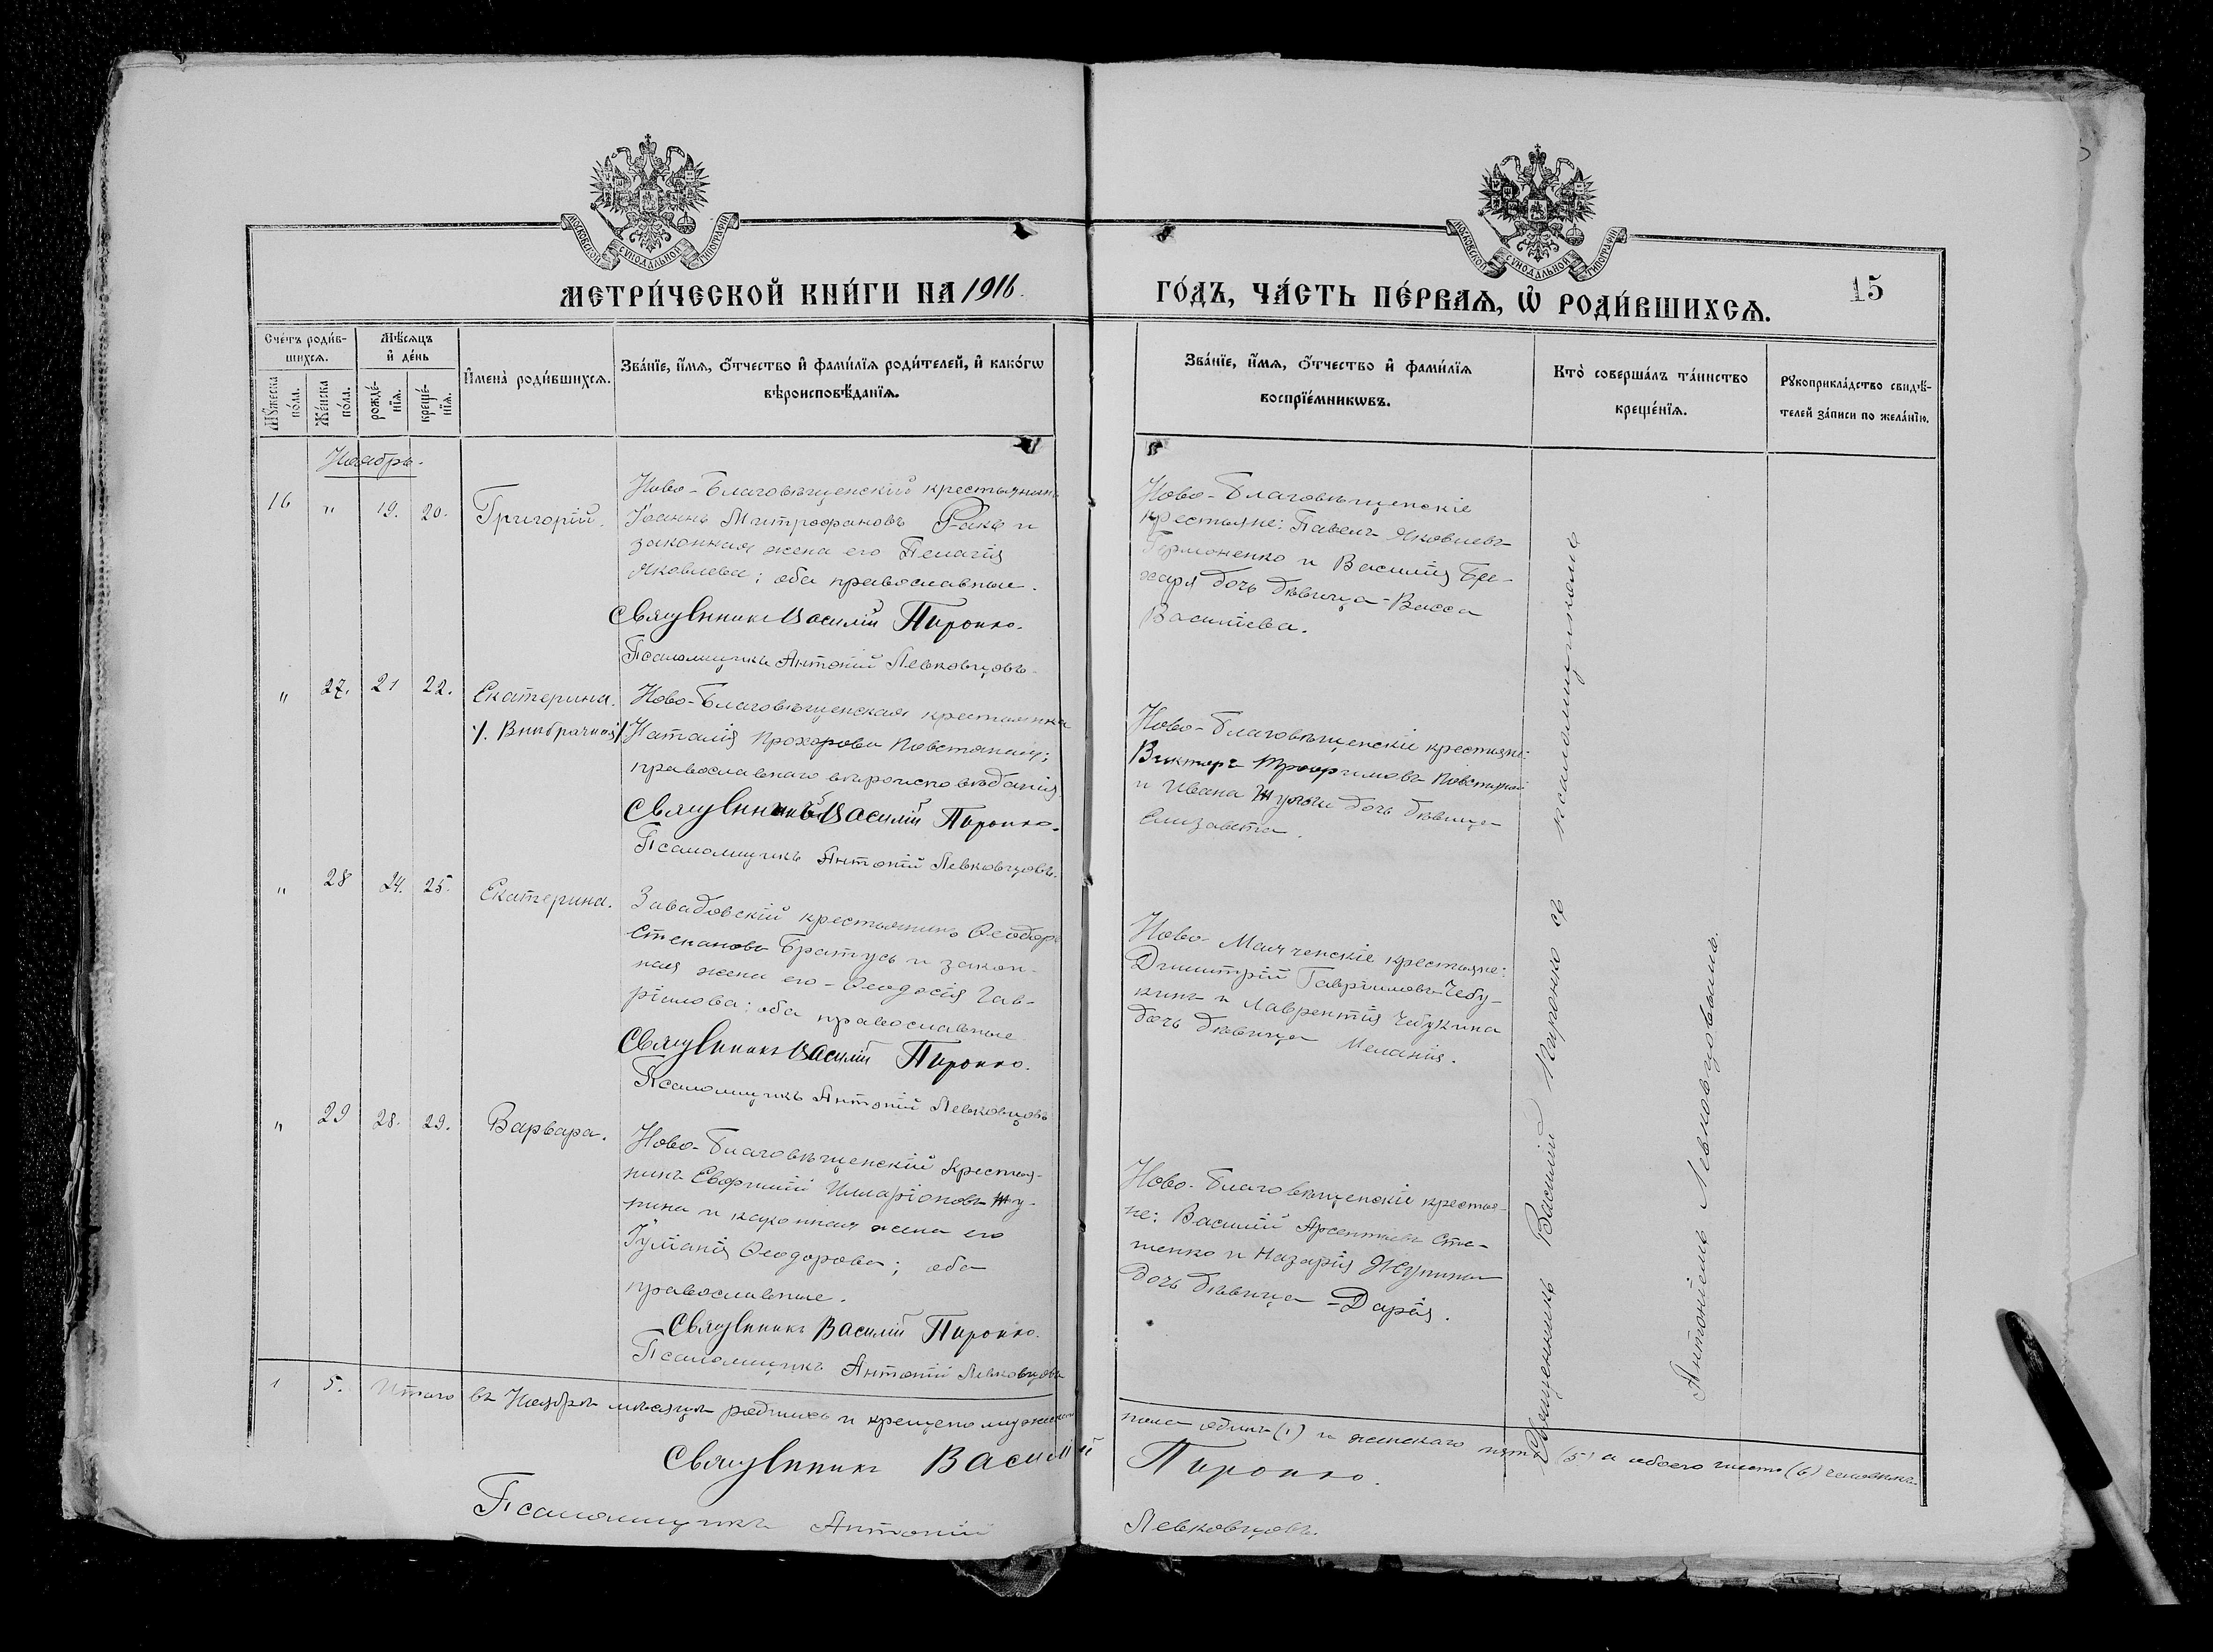 МОСКОВСКОЙ СѴНОДАЛЬНОЙ ТИПОГРАФІИ
МОСКОВСКОЙ СѴНОДАЛЬНОЙ ТИПОГРАФІИ
МЕТРИ́ЧЕСКОЙ КНИ́ГИ НА 1916.
ГО́ДЪ, ЧА́СТЬ ПЕ́РВАѦ, Ѡ҆ РОДИ́ВШИХСѦ.
15
Сче́тъ роди́в-
шихсѧ.
Мꙋ́жеска
по́ла.
Же́нска
по́ла.
Мѣ́сѧцъ
и҆ де́нь
рожде́-
нїѧ.
креще́-
нїѧ.
И҆мена̀ роди́вшихсѧ.
Зва́нїе, и҆́мѧ, ѻ҆́тчество и҆ фами́лїѧ роди́телей, и҆ како́гѡ
вѣроисповѣ́данїѧ.
Зва́нїе, и҆́мѧ, ѻ҆́тчество и҆ фами́лїѧ
воспрїе́мникѡвъ.
Кто̀ соверша́лъ та́инство
креще́нїѧ.
Рꙋкоприкла́дство свидѣ́-
телей за́писи по жела́нїю.
Ноябрь.
16 " 19. 20. Григорій.
Ново-Благовѣщенскій крестьянинъ
Іоаннъ Митрофановъ Ракъ и
законная жена его Пелагія
Яковлева; оба православные.
Священникъ Василій Пиронко.
Псаломщикъ Антоній Левковцовъ.
Ново-Благовѣщенскіе
крестьяне: Павелъ Яковлевъ
и Василія Бре-
харя дочь дѣвица-Васса
Василіева.
" 27. 21 22. Екатерина.
/. Внѣбрачная/
Ново-Благовѣщенская крестьянка
Наталія Прохорова
православнаго вѣроисповѣданія.
Священникъ Василій Пиронко.
Псаломщикъ Антоній Левковцовъ.
Ново-Благовѣщенскіе крестьяне:
Викторъ Трофимовъ
и Ивана дочь дѣвица
Елизавета.
" 28 24. 25. Екатерина.
Завадовскій крестьянинъ Ѳеодоръ
Степановъ Братусь и закон-
ная жена его-Ѳеодосія Гав-
ріилова: оба православные
Священникъ Василій Пиронко.
Псаломщикъ Антоній Левковцовъ
Ново-Маяченскіе крестьяне:
Димитрій Гавріиловъ Чебу-
кинъ и Лаврентія Чебукина
дочь дѣвица Меланія.
" 29 28. 29. Варвара.
Ново-Благовѣщенскій крестья-
нинъ Евфимій Илларіоновъ Жу-
пина и законная жена его
Іуліанія Ѳеодорова; оба
православные.
Священникъ Василій Пиронко.
Псаломщикъ Антоній Левковцовъ
Ново-Благовѣщенскіе крестья-
не: Василій Арсентіевъ Сте-
ценко и Назарія Жупины
дочь дѣвица-Дарія.
Священникъ Василій Пиронко съ псаломщикомъ
Антоніемъ Левковцовымъ.
1 5. Итого въ Ноябрѣ мѣсяцѣ родилось и крещено мужескаго
пола одинъ (1) и женскаго пять (5) а обоего шесть (6) человѣкъ.
Священникъ Василій Пиронко.
Псаломщикъ Антоній Левковцовъ.